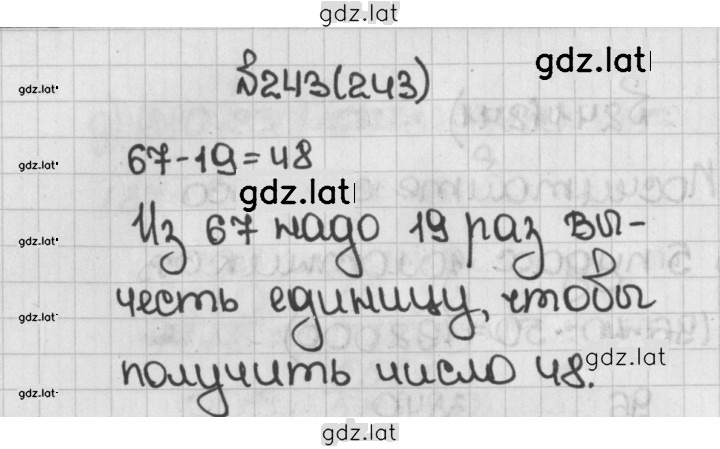 gdz.lat
gdz.lat
№243(243)
gdz.lat
67-19=48
gdz.lat
gdz.lat
Из 67 надо 19 раз вы-
gdz.lat
честь единицу, чтобы
gdz.lat
gdz.lat
получить число 48.
gdz.lat
gdz.lat